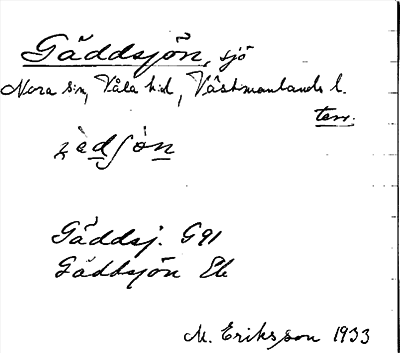 Gäddsjön, sjö
Nora sn, Våla hd, Västmanlands l.
terr.
Gäddsj. G91
Gäddsjön Ek
M. Eriksson 1933